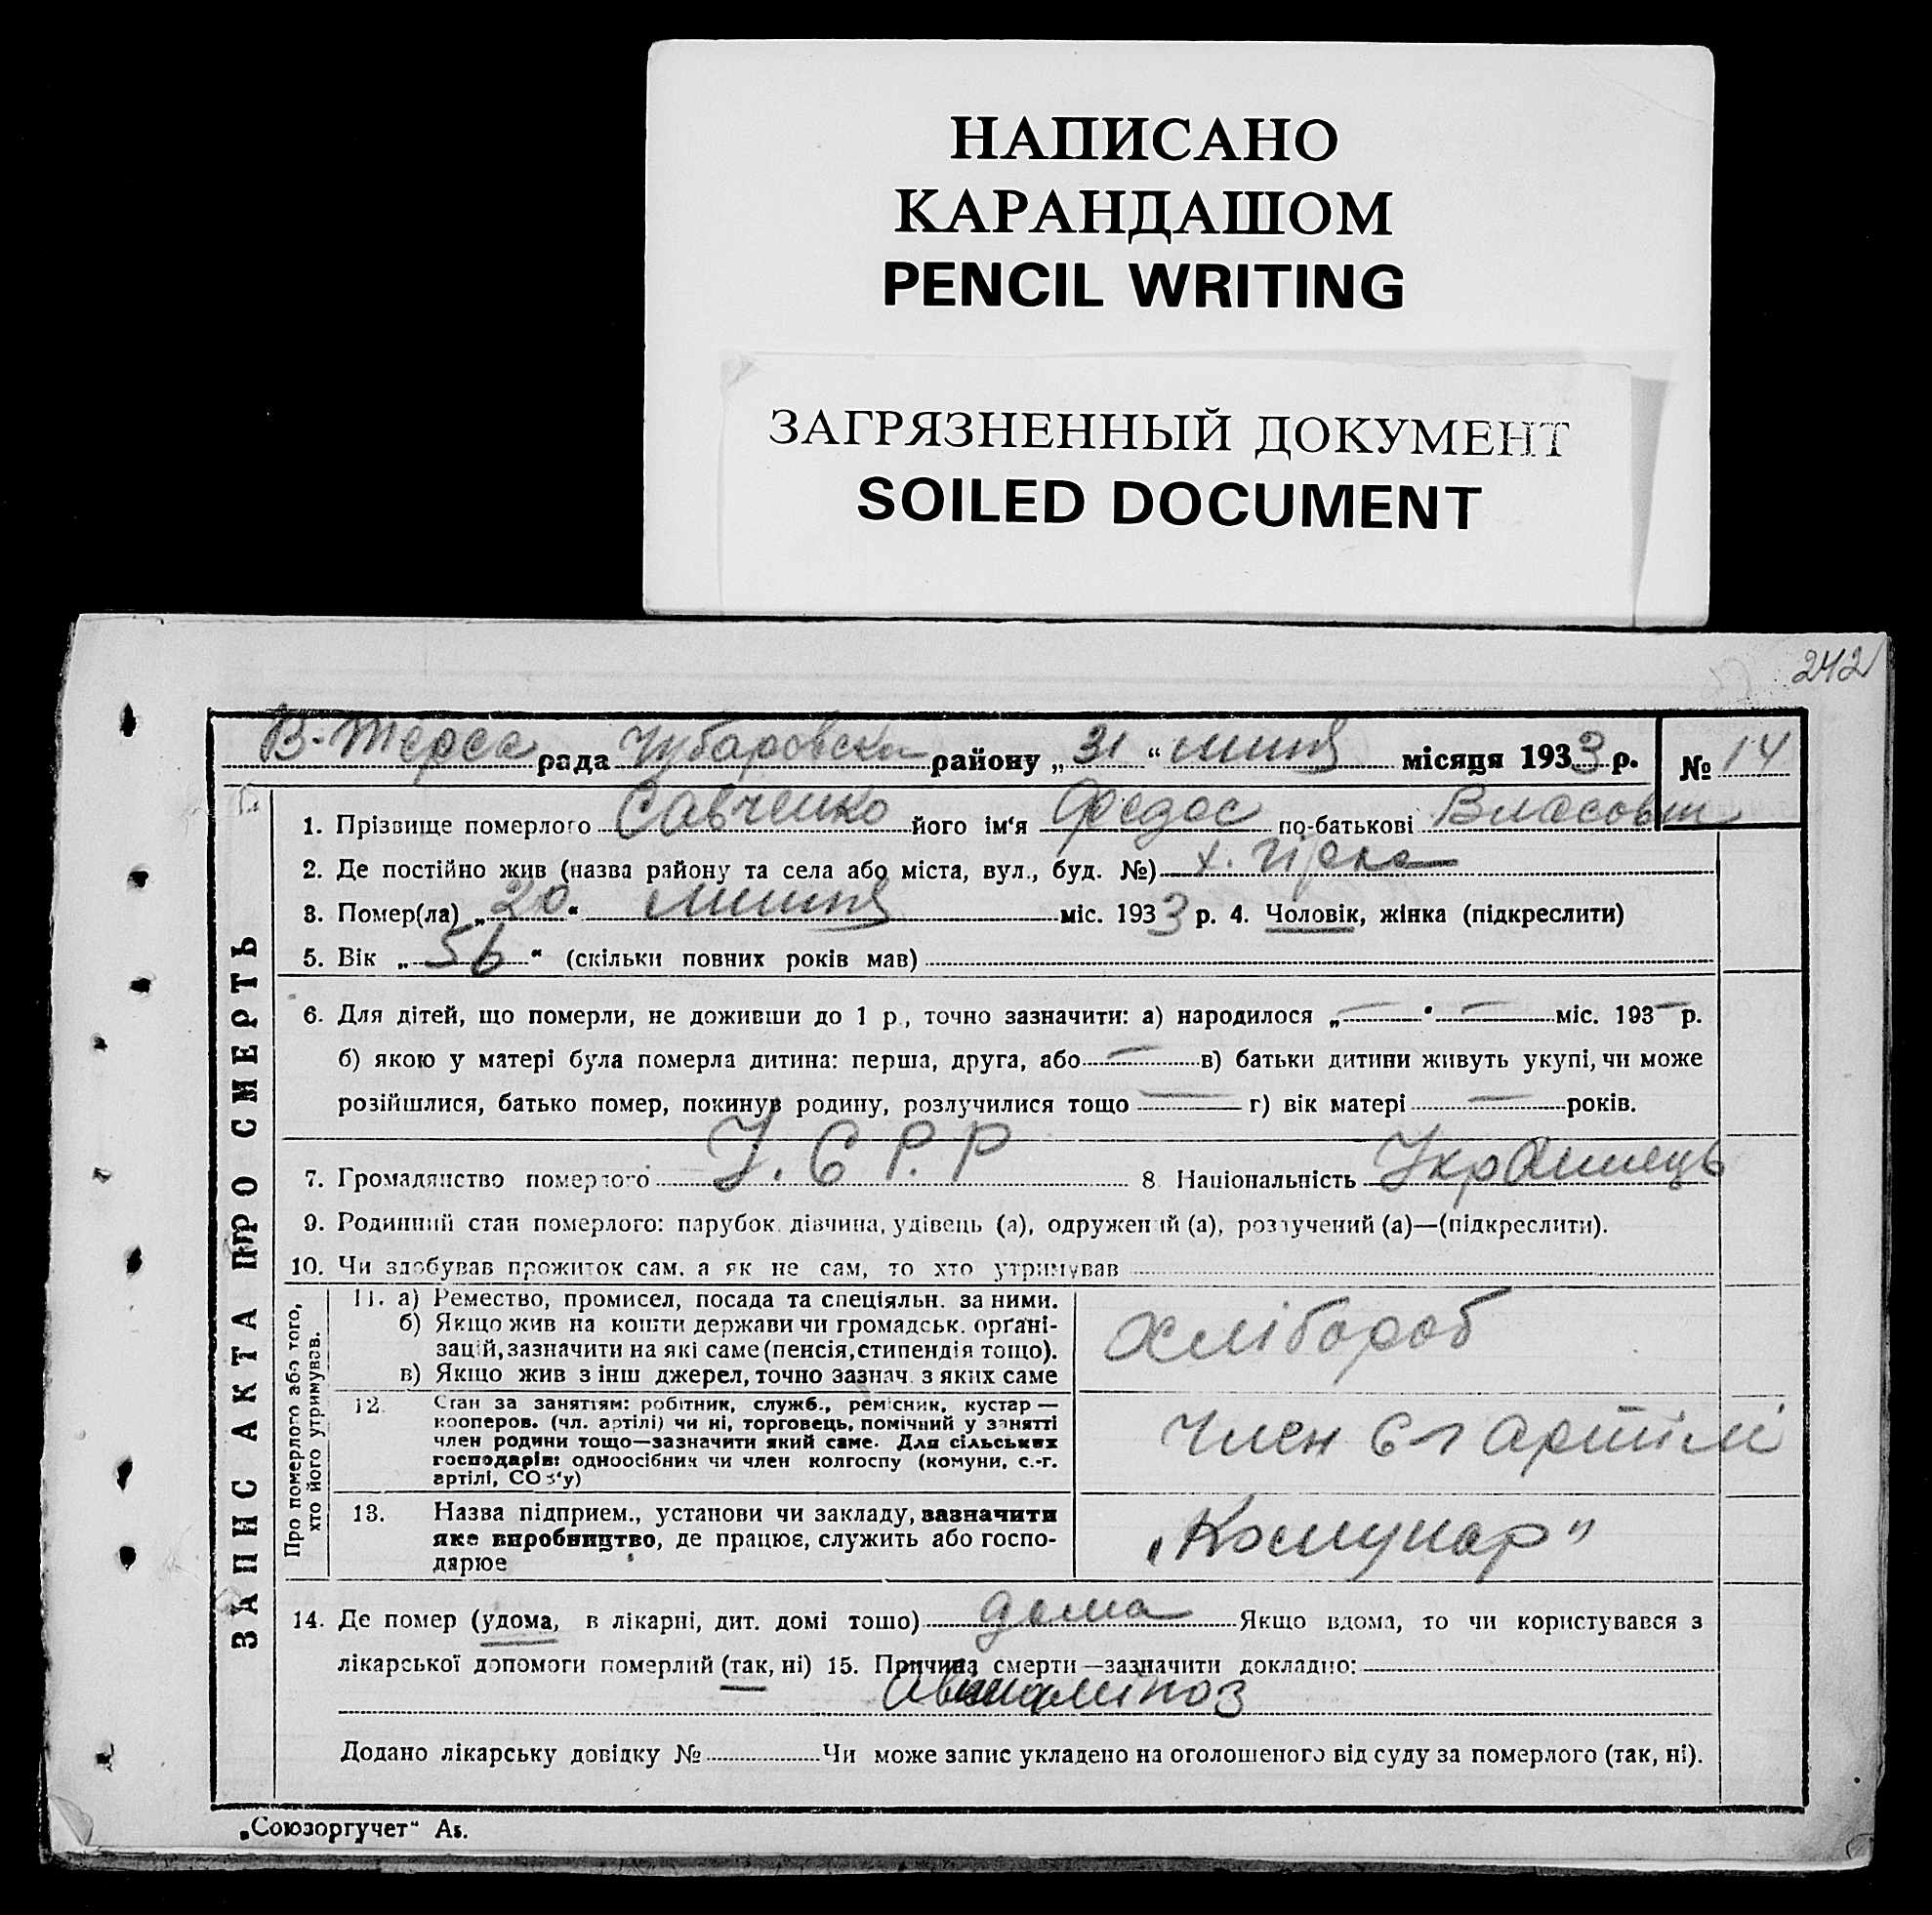 НАПИСАНО
КАРАНДАШОМ
PENCIL WRITING
ЗАГРЯЗНЕННЫЙ ДОКУМЕНТ
SOILED DOCUMENT
242
В-Терса рада Чубаровска району „31“ липня місяця 1933 р. № 14
ЗАПИС АКТА ПРО СМЕРТЬ
1. Прізвище померлого Савченко його ім‘я Федос по-батькові Власович
2. Де постійно жив (назва району та села або міста, вул., буд. №) х.
3. Помер(ла) „20“ липня міс. 1933 р. 4. Чоловік, жінка (підкреслити)
5. Вік „56“ (скільки повних років мав)
6. Для дітей, що померли, не доживши до 1 р., точно зазначити: а) народилося „—“ — міс. 193— р.
б) якою у матері була померла дитина: перша, друга, або — в) батьки дитини живуть укупі, чи може
розійшлися, батько помер, покинув родину, розлучилися тощо — г) вік матері — років.
7. Громадянство померлого У.С.Р.Р 8. Національність Українець
9. Родинний стан померлого: парубок, дівчина, удівець (а), одружений (а), розлучений (а)—(підкреслити).
10. Чи здобував прожиток сам, а як не сам, то хто утримував
Про померлого або того,
хто його утримував.
11. а) Ремество, промисел, посада та спеціяльн. за ними.
б) Якщо жив на кошти держави чи громадськ. орґані-
зацій, зазначити на які саме (пенсія, стипендія тощо).
в) Якщо жив з інш джерел, точно зазнач. з яких саме
Хлібороб
12. Стан за заняттям: робітник, служб., ремісник, кустар —
кооперов. (чл. артілі) чи ні, торговець, помічний у занятті
член родини тощо—зазначити який саме. Для сільських
господарів: одноосібник чи член колгоспу (комуни, с.-г.
артілі, СОЗ‘у)
Член с г артілі
13. Назва підприєм., установи чи закладу, зазначити
яке виробництво, де працює, служить або госпо-
дарює
„Комунар"
14. Де помер (удома, в лікарні, дит. домі тощо) дома Якщо вдома, то чи користувався з
лікарської допомоги померлий (так, ні) 15. Причина смерти—зазначити докладно:
Авитаміноз
Додано лікарську довідку № Чи може запис укладено на оголошеного від суду за померлого (так, ні).
„Союзоргучет“ Аs.